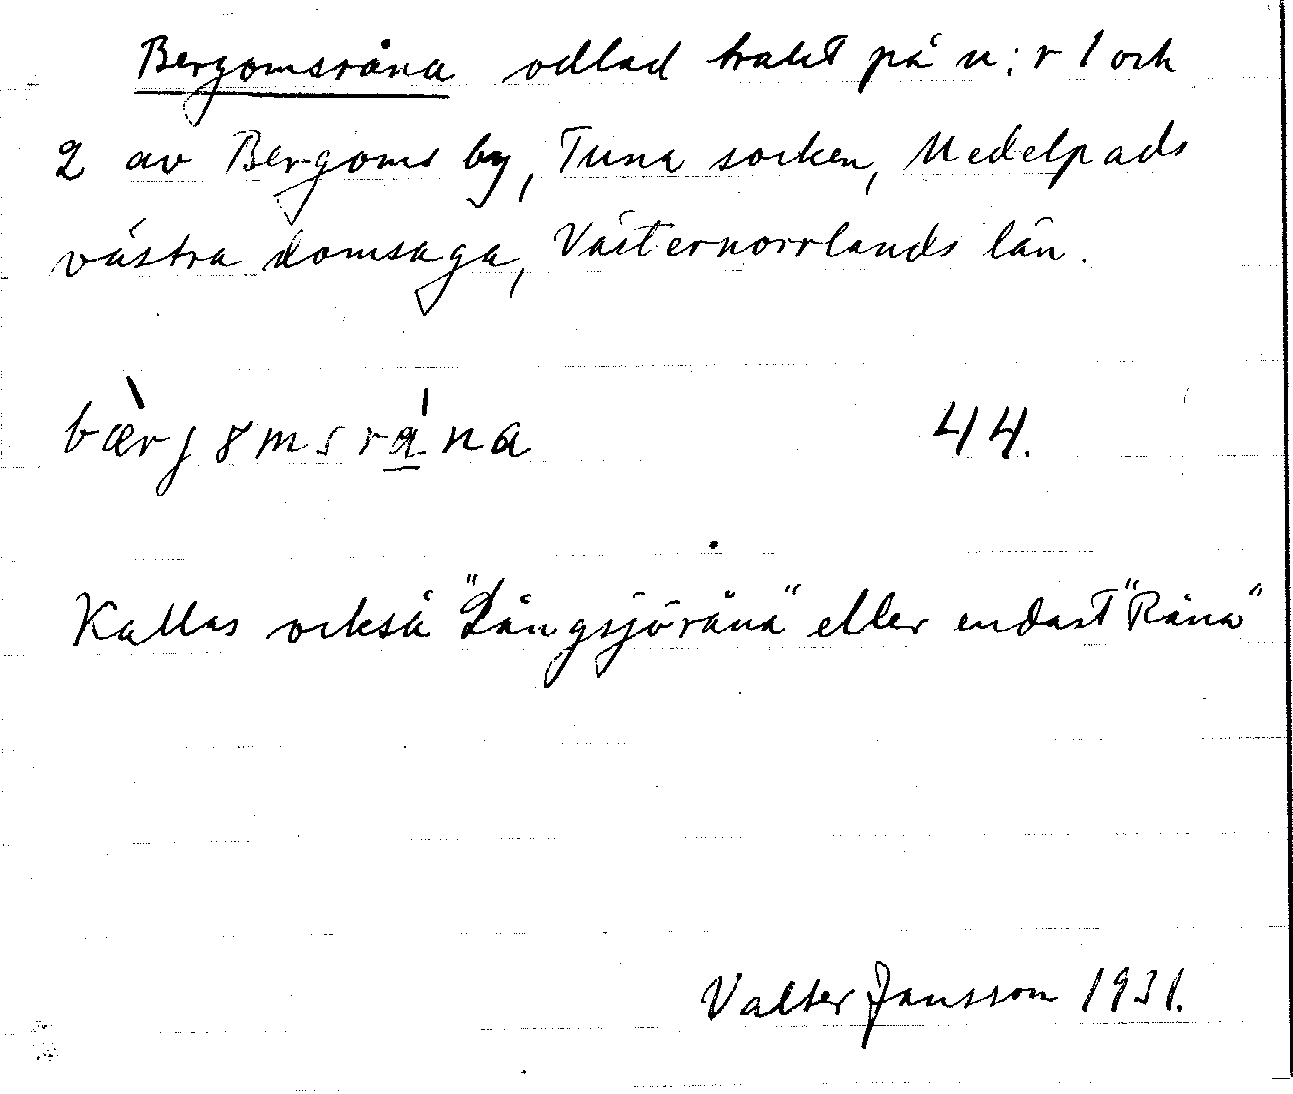 Bergomsråna odlad trakt på n:r 1 och
2 av Bergoms by, Tuna socken, Medelpads
västra domsaga, Västernorrlands län.
bæ̀rjomsrána 44.
Kallas också "Långsjöråna" eller endast "Råna"
Valter Jansson 1931.